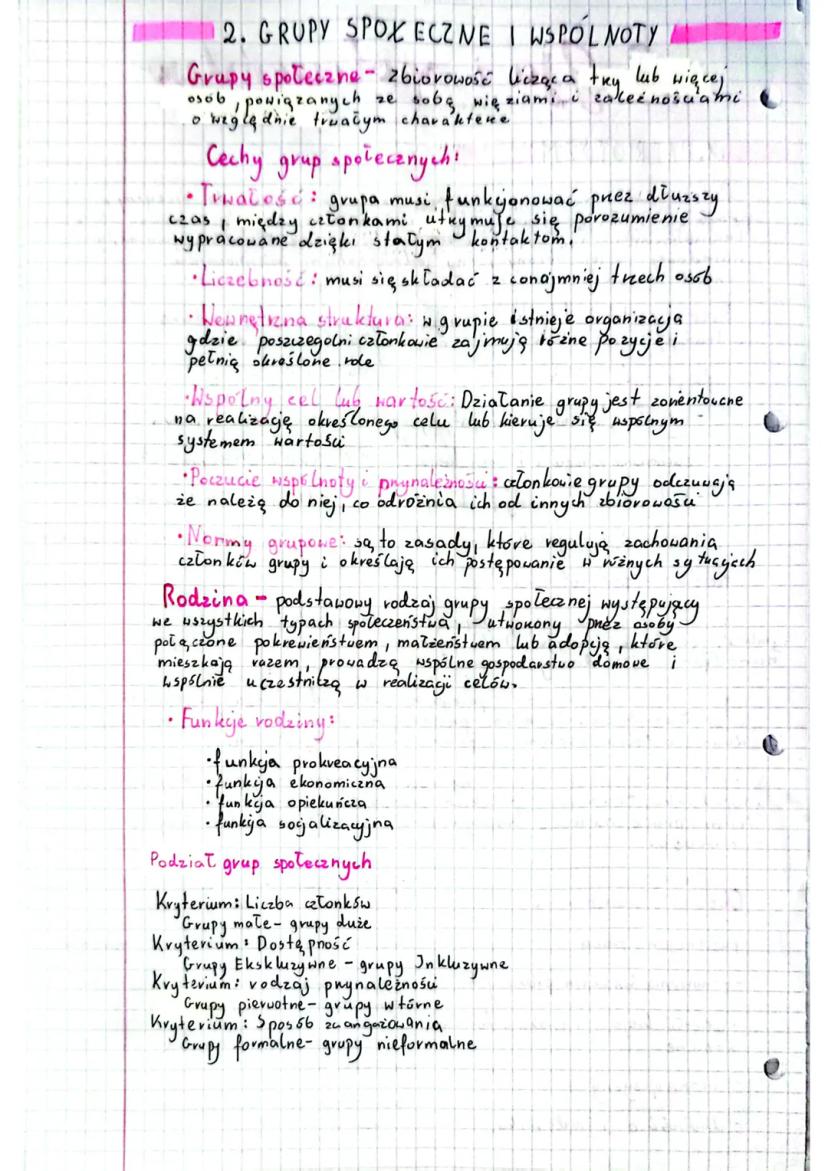 2. GRUPY SPOŁECZNE I WSPÓLNOTY
Grupy społeczne - zbiorowość licząca trzy lub więcej
osób, powiązanych ze sobą więziami i zależnościami
o względnie trwałym charakterze
Cechy grup społecznych:
• Trwałość: grupa musi funkcjonować przez dłuższy
czas, między członkami utrzymuje się porozumienie
wypracowane dzięki stałym kontaktom.
• Liczebność: musi się składać z conajmniej trzech osób
• Wewnętrzna struktura: w grupie istnieje organizacja
gdzie poszczególni członkowie zajmują różne pozycje i
pełnią określone role
• Wspólny cel lub wartość: Działanie grupy jest zorientowane
na realizację określonego celu lub kieruje się wspólnym
systemem wartości
• Poczucie wspólnoty i przynależności: członkowie grupy odczuwają
że należą do niej, co odróżnia ich od innych zbiorowości
• Normy grupowe: są to zasady, które regulują zachowania
członków grupy i określają ich postępowanie w różnych sytuacjach
Rodzina - podstawowy rodzaj grupy społecznej występujący
we wszystkich typach społeczeństwa, utworzony przez osoby
połączone pokrewieństwem, małżeństwem lub adopcją, które
mieszkają razem, prowadzą wspólne gospodarstwo domowe i
wspólnie uczestniczą w realizacji celów.
• Funkcje rodziny:
• funkcja prokreacyjna
• funkcja ekonomiczna
• funkcja opiekuńcza
• funkcja socjalizacyjna
Podział grup społecznych
Kryterium: Liczba członków
Grupy małe - grupy duże
Kryterium: Dostępność
Grupy Ekskluzywne - grupy Inkluzywne
Kryterium: rodzaj przynależności
Grupy pierwotne - grupy wtórne
Kryterium: Sposób zaangażowania
Grupy formalne - grupy nieformalne